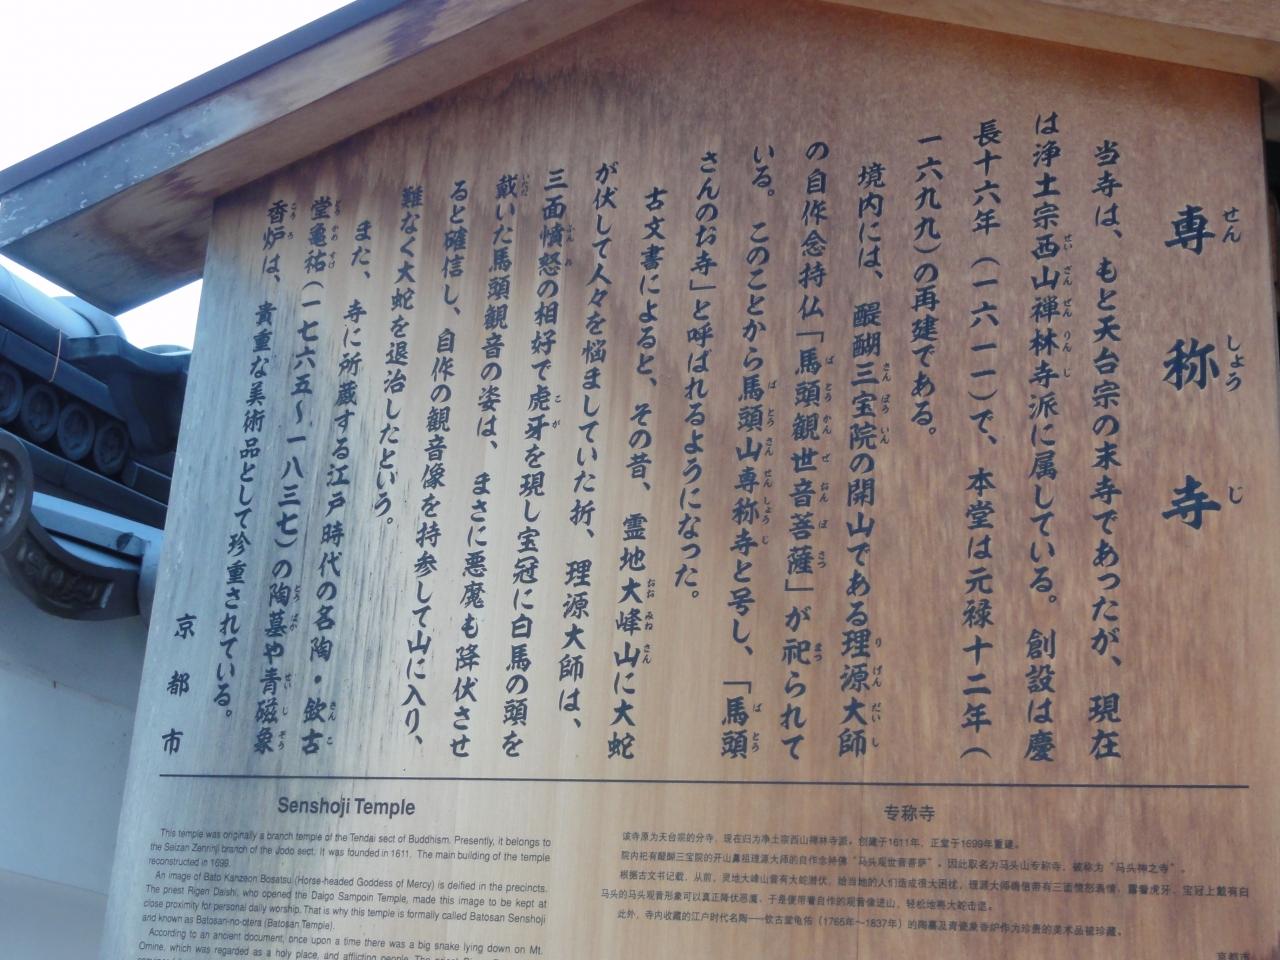 専称寺
せんしょうじ
当寺は、もと天台宗の末寺であったが、現在
は浄土宗西山禅林寺派に属している。創設は慶
長十六年（一六一一）で、本堂は元禄十二年（
一六九九）の再建である。
境内には、醍醐三宝院の開山である理源大師
の自作念持仏「馬頭観世音菩薩」が祀られて
いる。このことから馬頭山専称寺と号し、「馬頭
さんのお寺」と呼ばれるようになった。
古文書によると、その昔、霊地大峰山に大蛇
が伏して人々を悩ましていた折、理源大師は、
三面憤怒の相好で虎牙を現し宝冠に白馬の頭を
戴いた馬頭観音の姿は、まさに悪魔も降伏させ
ると確信し、自作の観音像を持参して山に入り、
難なく大蛇を退治したという。
また、寺に所蔵する江戸時代の名陶・欽古
堂亀祐（一七六五～一八三七）の陶墓や青磁象
香炉は、貴重な美術品として珍重されている。
京都市
Senshoji Temple
This temple was originally a branch temple of the Tendai sect of Buddhism. Presently, it belongs to
the Seizan Zenrinji branch of the Jodo sect. It was founded in 1611. The main building of the temple
reconstructed in 1699.
An image of Bato Kanzeon Bosatsu (Horse-headed Goddess of Mercy) is deified in the precincts.
The priest Rigen Daishi, who opened the Daigo Sampoin Temple, made this image to be kept at
close proximity for personal daily worship. That is why this temple is formally called Batosan Senshoji
and known as Batosan-no-otera (Batosan Temple).
According to an ancient document, once upon a time there was a big snake lying down on Mt.
Omine, which was regarded as a holy place, and afflicting people.
专称寺
该寺原为天台宗的分寺，现在归为净土宗西山禅林寺派。创建于1611年，正堂于1699年重建。
院内祀有醍醐三宝院的开山鼻祖理源大师的自作念持佛“马头观世音菩萨”。因此取名为马头山专称寺，被称为“马头神之寺”。
根据古文书记载，从前，灵地大峰山曾有大蛇潜伏，给当地的人们造成很大困扰，理源大师确信带有三面愤怒表情，露着虎牙、宝冠上戴有白
马的头的马头观音形象可以真正降伏恶魔，于是便带着自作的观音像进山，轻松地将大蛇击退。
此外，寺内收藏的江户时代名陶——钦古堂龟佑（1765年～1837年）的陶墓及青瓷象香炉作为珍贵的美术品被珍藏。
京都市